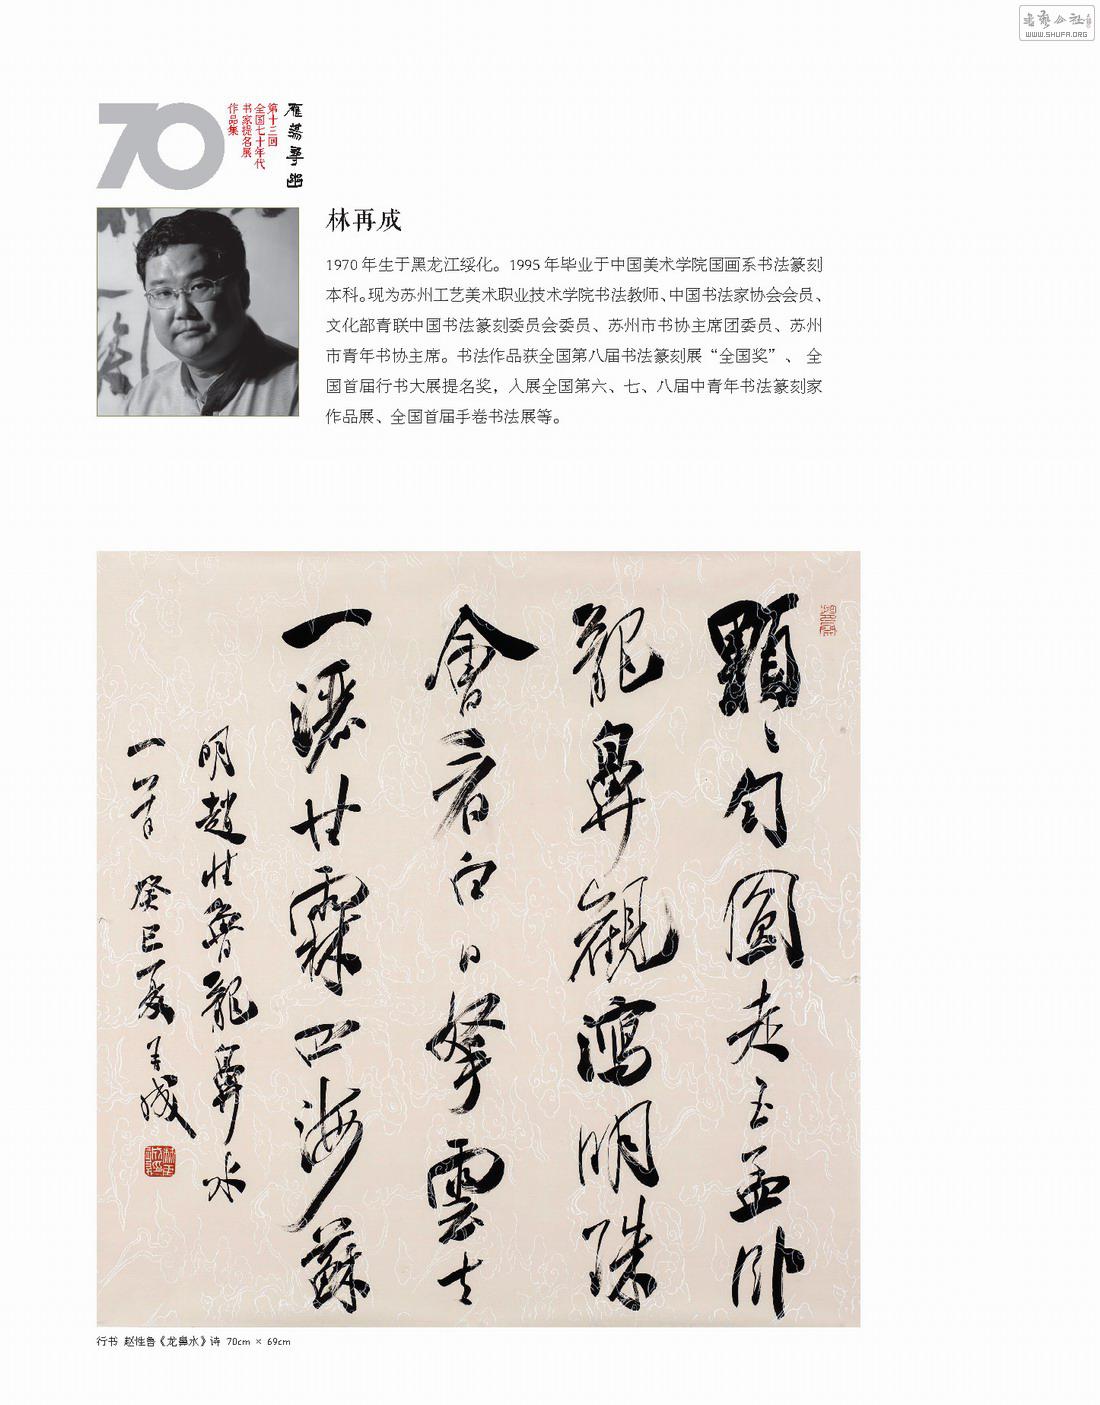 书法公社
WWW.SHUFA.ORG
70
雁荡寻幽
第十三回
全国七十年代
书家提名展
作品集
林再成
1970 年生于黑龙江绥化。1995 年毕业于中国美术学院国画系书法篆刻
本科。现为苏州工艺美术职业技术学院书法教师、中国书法家协会会员、
文化部青联中国书法篆刻委员会委员、苏州市书协主席团委员、苏州
市青年书协主席。书法作品获全国第八届书法篆刻展“全国奖”、 全
国首届行书大展提名奖，入展全国第六、七、八届中青年书法篆刻家
作品展、全国首届手卷书法展等。
顆々匀圓走玉盂卧
龍鼻觀瀉明珠
會看白日拏雲去
一灑甘霖四海蘇
明趙性魯龍鼻水
一首 癸巳夏 再成
行书 赵性鲁《龙鼻水》诗 70cm × 69cm